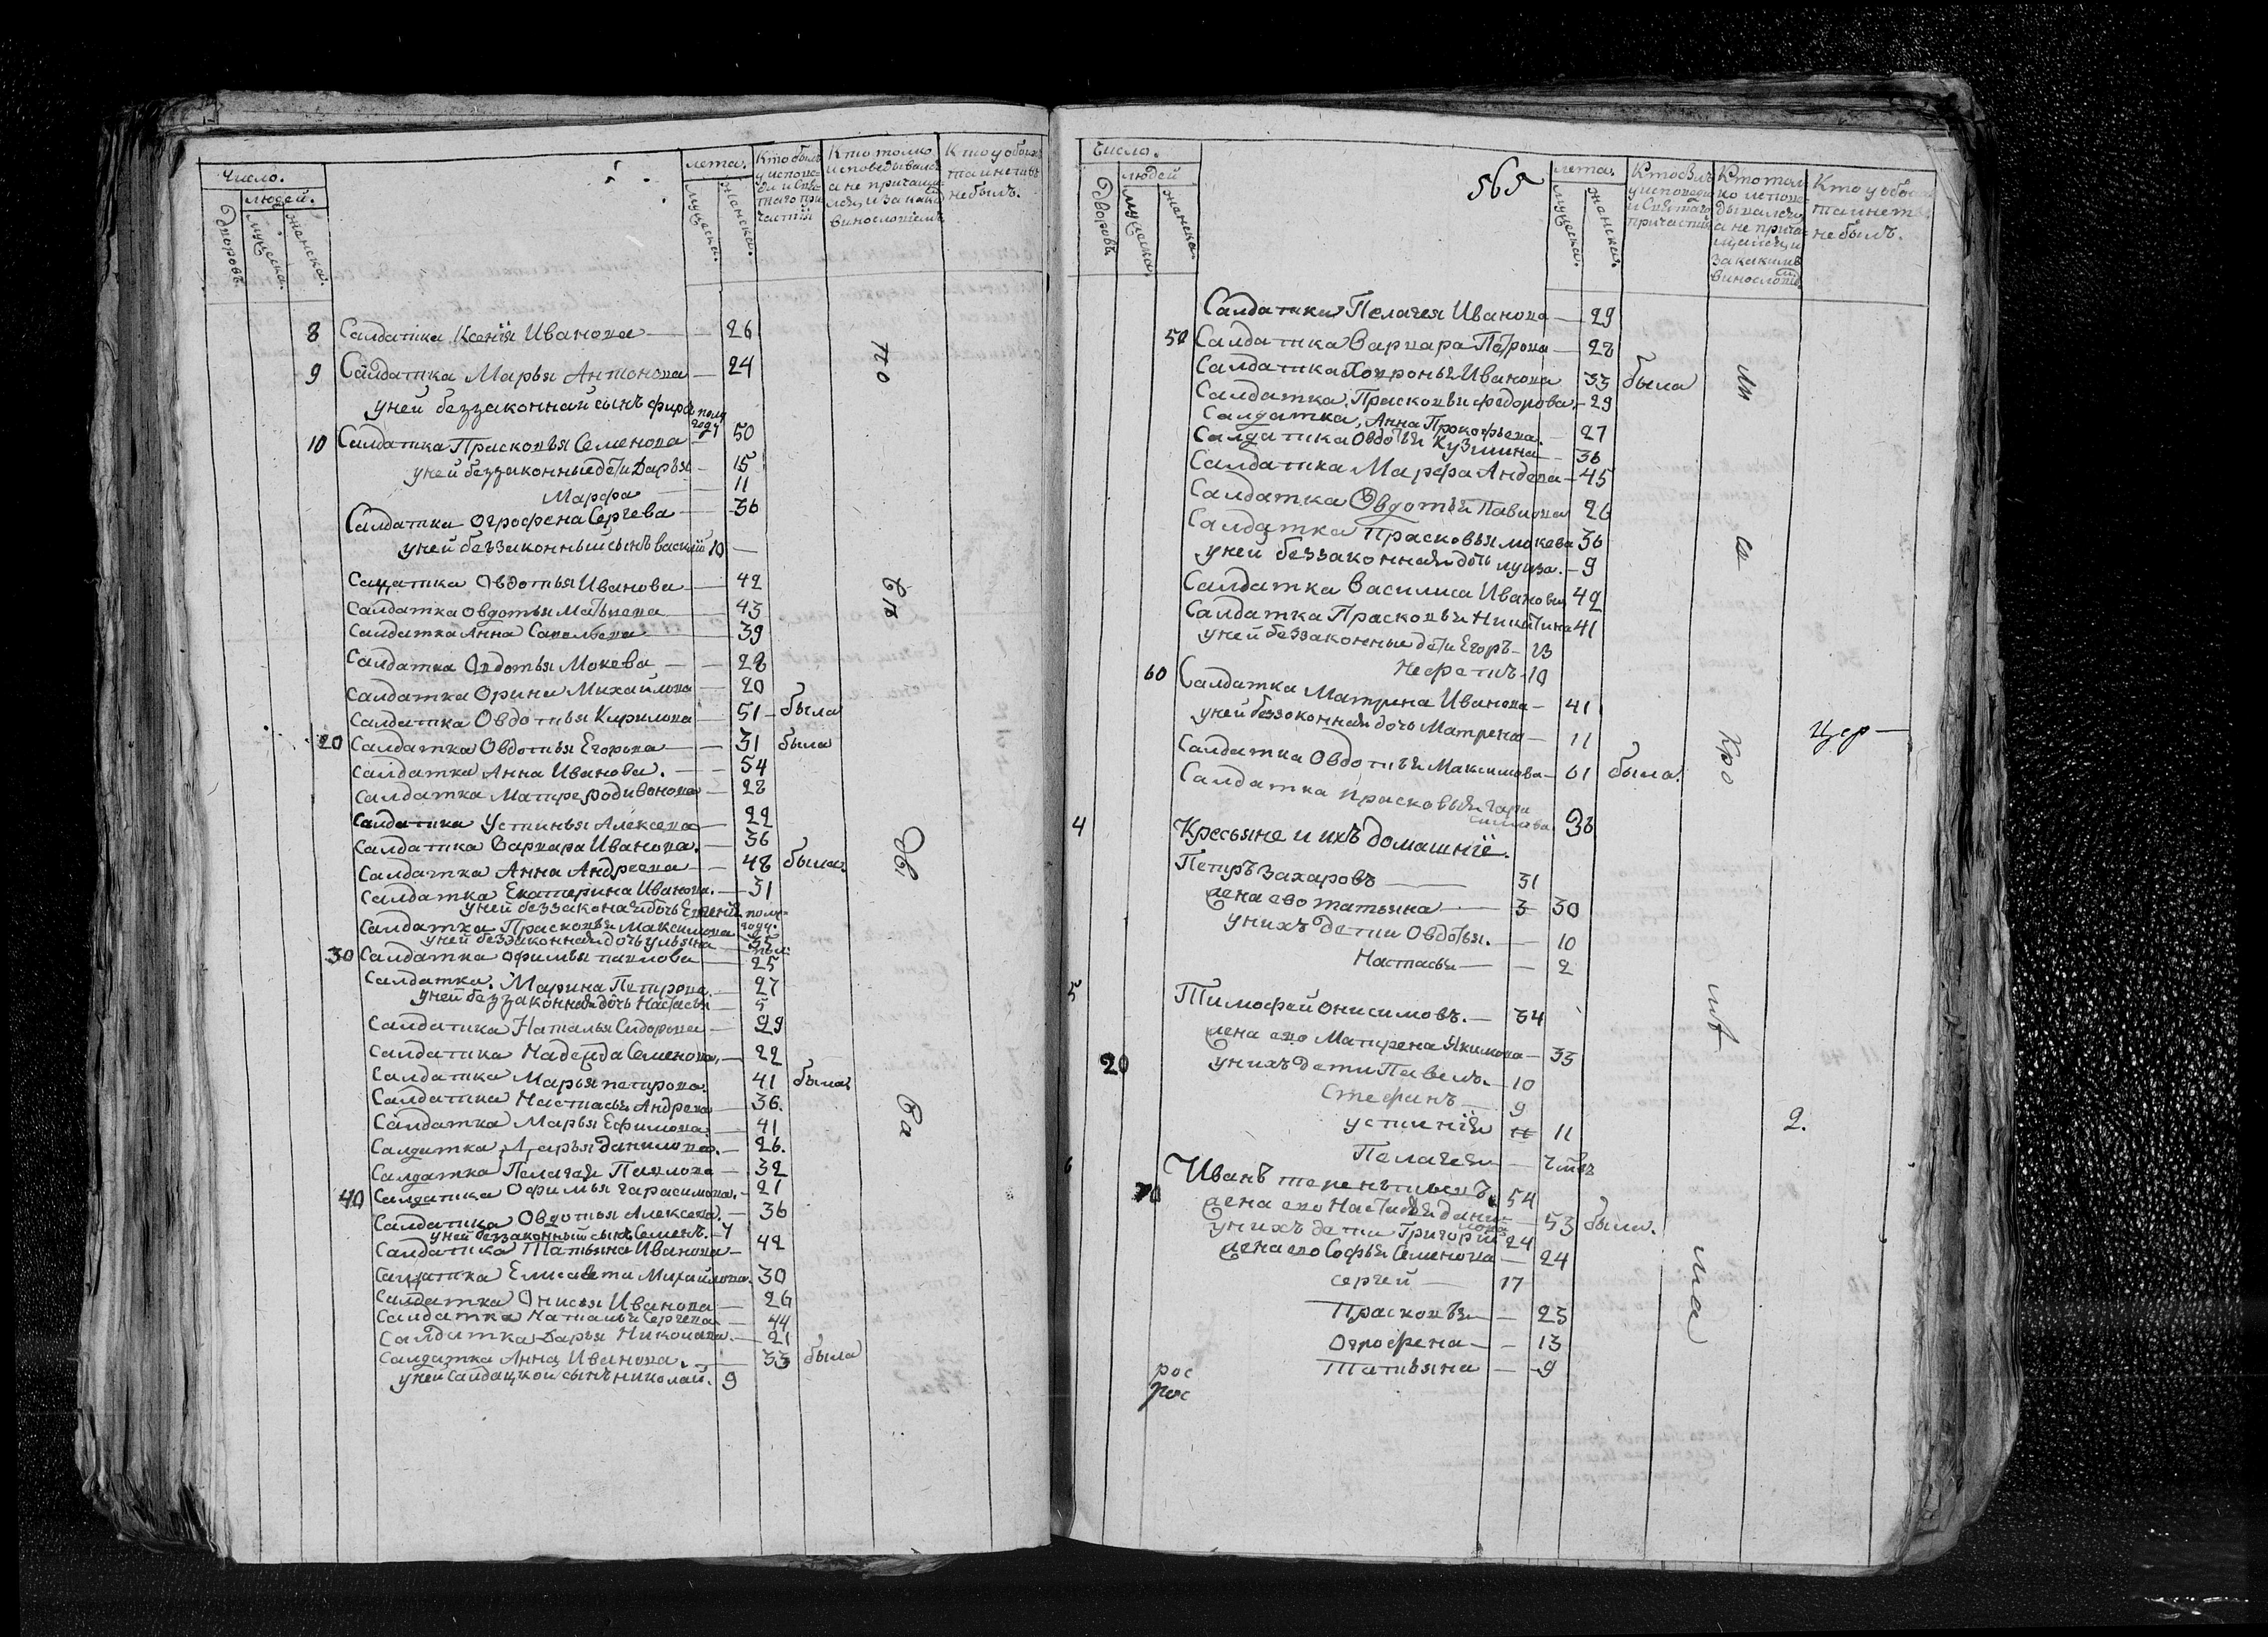 Число.
людей.
Дворовъ
мужеска.
женска.
лета.
мужеска.
женска.
Кто былъ
у испове-
ди и свя-
таго при-
частія
Кто толко
исповедывался
а не причаща-
лся, и за каким
винословіемъ
Кто у обоих
таинствъ
не былъ.
8 Салдатка Ксенія Иванова — 26
9 Салдатка Марья Антонова — 24
уней беззаконной сынъ полу
году
10 Салдатка Прасковья Семенова — 50
уней беззаконные дети Дарья — 15
Марфа — 11
Салдатка Огрофена Сергева — 36
уней беззаконный сынъ василій 10 —
Салдатка Овдотья Иванова — 42
Салдатка Овдотья Матвеева — 43
Салдатка Анна Савельева — 39
Салдатка Овдотья Мокева — 28
Салдатка Орина Михайлова — 20
Салдатка Овдотья Кирилова — 51 — была
20 Салдатка Овдотья Егорова — 31 была
Салдатка Анна Иванова. — 54
Салдатка Матре родивонова — 28
Салдатка Устинья Алексева — 22
Салдатка Варвара Иванова. — 36
Салдатка Анна Андреева — 48 была
Салдатка Екатерина Иванова. — 31
уней беззаконая дочь полу-
году.
Салдатка Прасковья Максимова
уней беззаконная дочь ульяна — 35
30 Салдатка офимья павлова — 25
Салдатка. Марина Петрова. — 27
уней беззаконная дочь Настасья — 5
Салдатка Наталья Сидорова — 29
Салдатка Надежда Семенова, — 22
Салдатка Марья петрова. 41 была
Салдатка Настасья Андрева — 36.
Салдатка Марья Ефимова. — 41
Салдатка Дарья данилова. — 26.
Салдатка Пелагея Павлова — 32
40 Салдатка Офимья гарасимова. — 21
Салдатка Овдотья Алексева. — 36
уней беззаконный сынъ Семенъ. — 4
Салдатка Татьяна Иванова — 42
Салдатка Елисавета Михайлова. 30
Салдатка Онисья Иванова — 26
Салдатка Наталья Сергева — 44
Салдатка Дарья Николаева. — 21
Салдатка Анна Иванова. — 33 была
уней Салдацкой сынъ николай. 9
по
еп
ва
565
Число.
людей
Дворовъ
мужеска.
женска.
лета.
мужеска.
женска.
Кто былъ
у исповеди
и святаго
причастия
Кто тол
ко испове
дывался
а не прича-
щался, и
за какимъ
винословіе
Кто у обоих
таинств
не былъ.
Салдатка Пелагея Иванова — 29
50 Салдатка Варвара Петрова — 28
Салдатка Ховронья Иванова 33 была
Салдатка. Прасковья федорова. — 29
Салдатка, Анна Прокофьева. — 27
Салдатка Овдотья Кузмина — 36
Салдатка Марфа Андева — 45
Салдатка Овдотья Павлова 26
Салдатка Прасковья мокева 36
уней беззаконная дочь луиза. — 9
Салдатка Василиса Иванова 42
Салдатка Прасковья Никитина 41
уней беззаконные дети Егоръ — 13
10
60 Салдатка Матрина Иванова — 41
уней беззоконная дочь Матрена — 11
Салдатка Овдотья Максимова — 61 была.
Салдатка прасковья гара
симова 36
4 Кресьяне и ихъ домашніе.
Петръ Захаровъ — 31
жена ево татьяна — 3 30
унихъ дети Овдотья. — 10
Настасья — 2
5 Тимофей Онисимовъ. — 34
жена ево Матрена Якимова — 33
20 унихъ дети Павелъ. — 10
Стефанъ — 9
устинія 11 11
Пелагея —
6 Иванъ терентьивъ. 54
70 жена ево Настасья дани
лова — 53 были.
унихъ дети Григорій 24
жена ево Софья Семенова — 24
сергей — 17
Прасковья — 23
Огрофена — 13
Татьяна — 9
рос
рос
кро
ма
цер —
2.